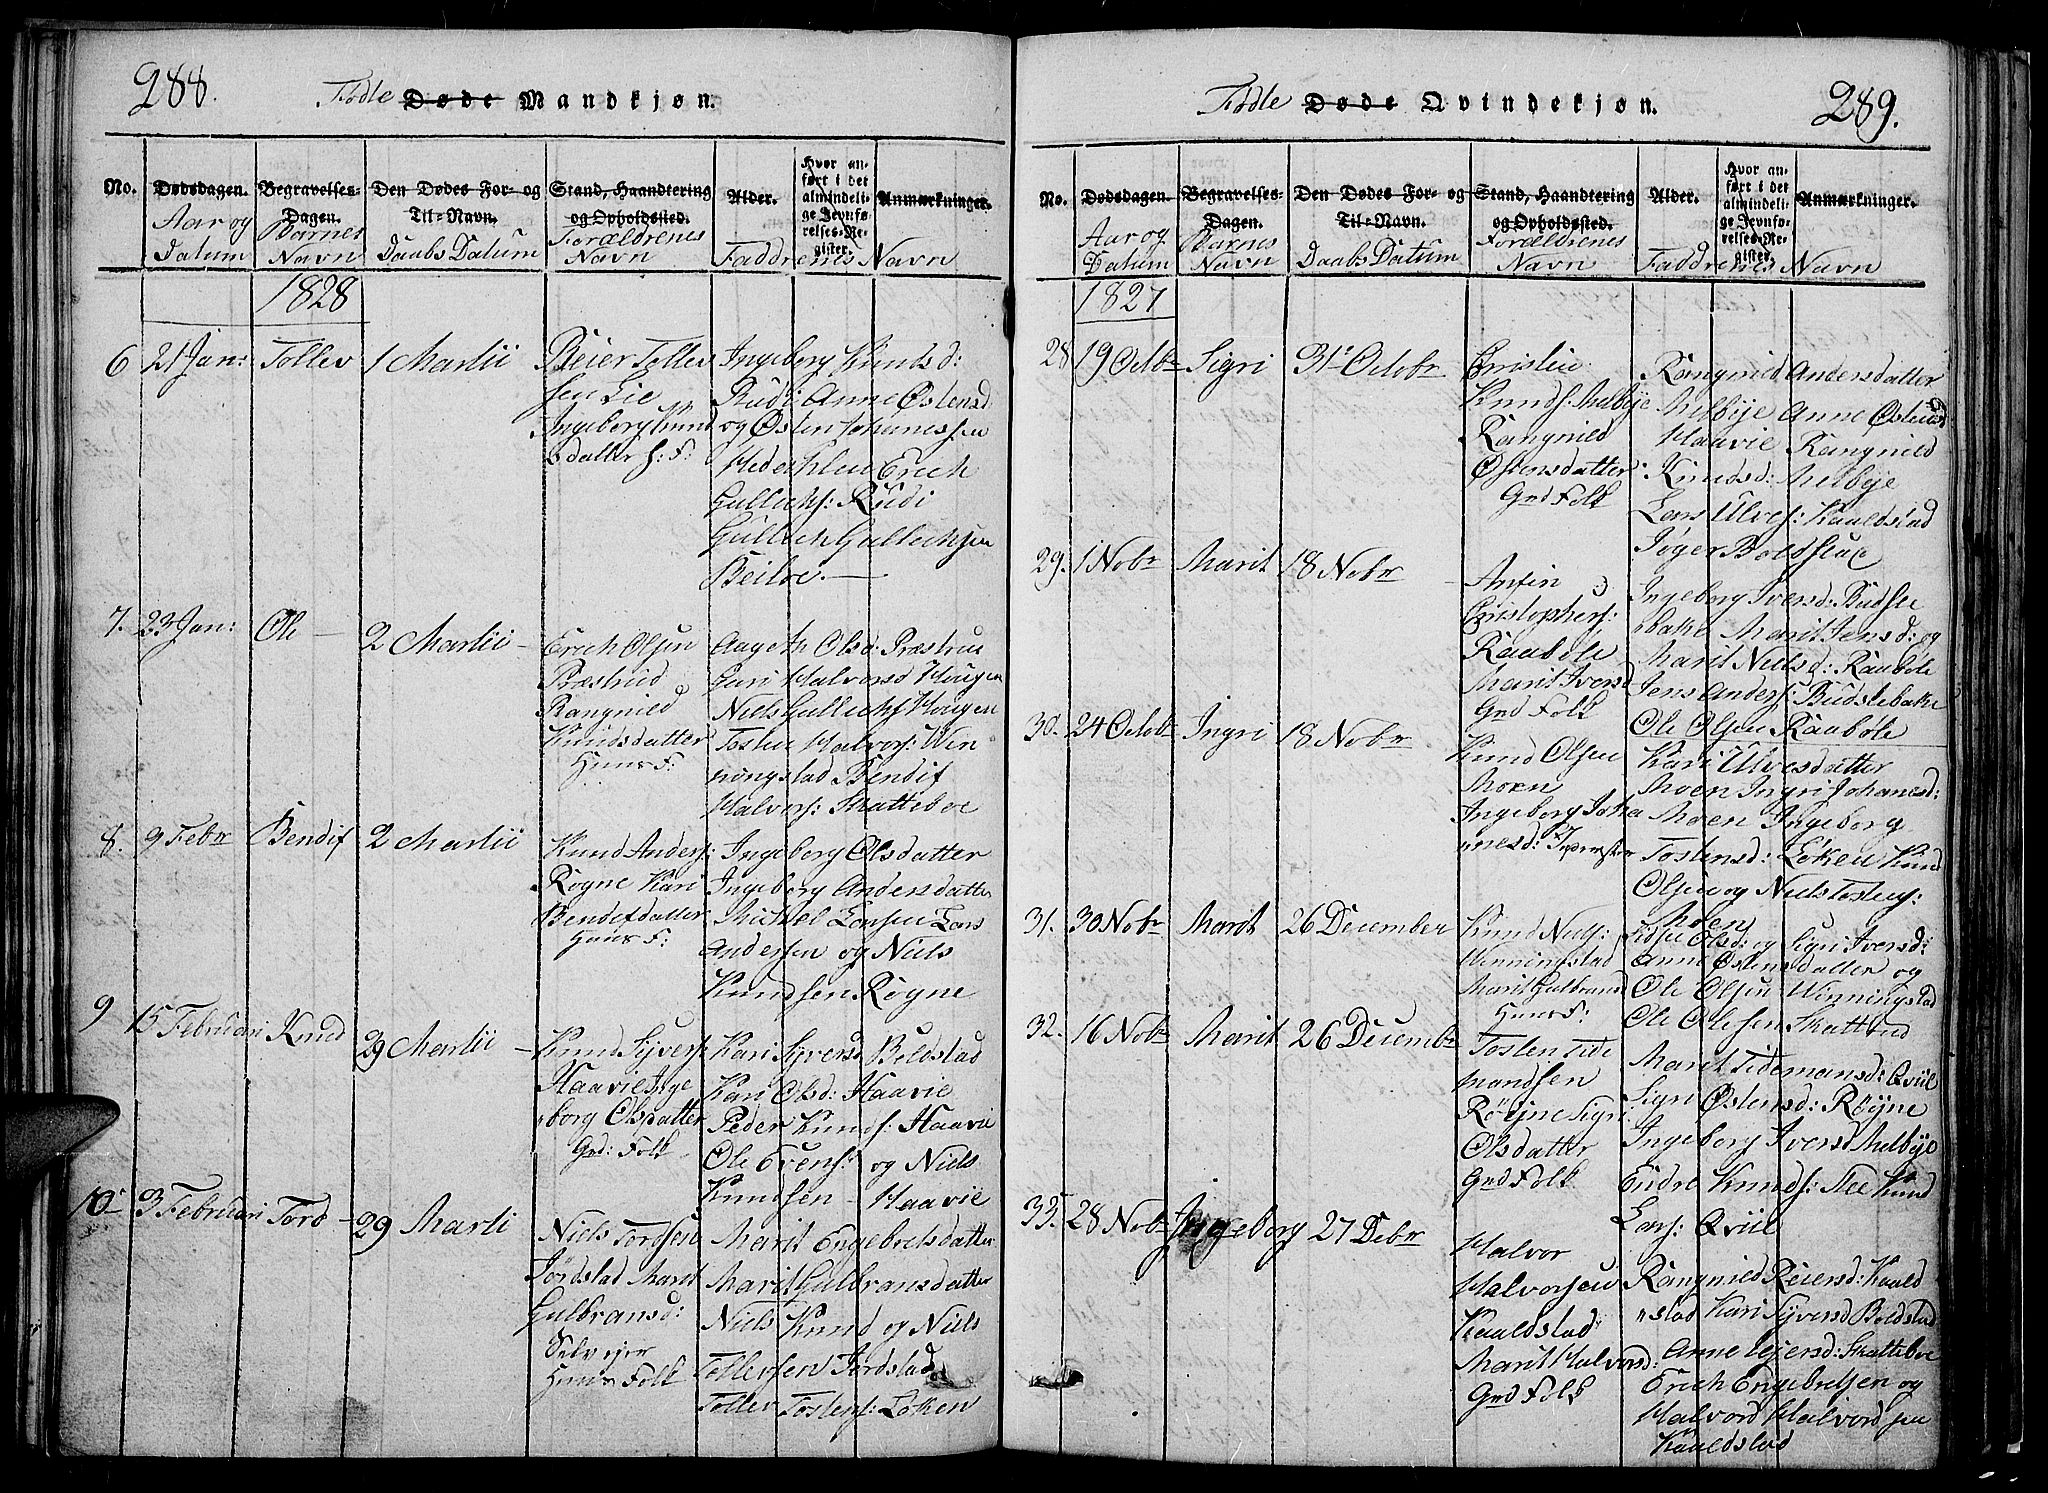 288.
Fødte Døde Mandkjøn.
No.
Dødsdagen.
Aar og
Datum
Begravelses-
Dagen.
Barnes
Navn
Den Dødes For- og
Til-Navn.
Daabs Datum
Stand, Haandtering
og Opholdssted.
Forældrenes
Navn
Alder.
Hvor an-
ført i det
almindeli-
ge Jevnfø-
relses-Re-
gister.
Anmærkninger.
Faddrenes Navn
1828
6
21 Jan:
Tollev
1 Martii
Reier Tollev
sen Lie
Ingeborg Knud
sdatter h: F:
Ingeborg Knutsd:
Rudi Anne Østensd
og Østen Johannessen
Hedahlen Erich
Gullichs: Rudi
Gullich Gullichsen
Beiloe.
7.
23 Jan:
Ole
2 Martii
Erich Olsen
Præstrud
Rangnild
Knudsdatter
Huus F:
Aageth Olsd: Præstrud
Guri Halvorsd Hougen
Niels Gullichs Hougen
Tosten Halvors: Win
ningstad Bendif
Halvors: Skatteboe
8.
9 Febr
Bendif
2 Martii
Knud Anders:
Røgne Kari
Bendifdatter
Huus F:
Ingeborg Olsdatter
Ingeborg Andersdatter
Mikkel Larsen Lars
Andersen og Niels
Knudsen Røgne
9
15 Februari
Knud
29 Martii
Knud Syvers:
Haavie Inge
borg Olsdatter
Grd: Folk
Kari Syversd Boldstad
Kari Olsd: Haavie
Peder Knuds: Haavie
Ole Evens: og Niels
Knudsen Haavie
10
3 Februari
Tord
29 Marti
Niels Tordsen
Jordstad Marit
Gulbransd:
Selvejer
Huus Folk
Marit Engebretsdatter
Marit Gulbransdatter
Niels Knud og Niels
Tollevsen Jordstad
Tollev Tostens: Løken
289.
Fødte Døde Qvindekjøn.
No.
Dødsdagen.
Aar og
Datum
Begravelses-
Dagen.
Barnes
Navn
Den Dødes For- og
Til-Navn.
Daabs Datum
Stand, Haandtering
og Opholdssted.
Forældrenes
Navn
Alder.
Hvor an-
ført i det
almindeli-
ge Jevnfø-
relses-Re-
gister.
Anmærkninger.
Faddrenes Navn
1827
28
19 Octbr
Sigri
31 Octobr
Cristen
Knuds: Melbye
Rangnild
Østensdatter
Grd Folk
Rangnild Andersdatter
Melbye Anne Østensd
Haavie Rangnild
Knudsd: Melbye
Lars Ulves: Kaaldstad
Jøger Boldstad
29.
1 Nobr
Marit
18 Nobr
Anfin
Cristophers:
Raabøle
Marit Iversd
Grd Folk
Ingeborg Iversd: Budsle
bake Marit Jensd: og
Marit Nielsd: Raabøle
Jens Anders: Budslebake
Ole Olsen Raabøle
30.
24 Octobr
Ingri
18 Nobr
Knud Olsen
Moen
Ingeborg Joha
nnesd: Inderster
Kari Ulvesdatter
Moen Ingri Johanesd:
Moen Ingeborg
Tostensd: Løken Knud
Olsen og Niels Tostens:
Moen
31.
30 Nobr
Marit
26 December
Knud Niels:
Winningstad
Marit Gulbrand
Huus F:
Sidsel Olsd: og Sigri Iversd:
Anne Østensdatter og
Ole Olsen Winningstad
Ole Olesen Skattrud
32.
16 Nobr
Marit
26 Decembr
Tosten Tide
mandsen
Røgne Sigri
Olsdatter
Grd Folk
Marit Tidemansd: Qviil
Sigri Østensd: Røgne
Ingeborg Iversd Melbye
Endre Knuds: Slee Knud
Lars: Qviil
33.
28 Nobr
Ingeborg
27 Debr
Halvor
Halvorsen
Kaaldstad
Marit Halvorsd:
Grd Folk
Rangnild Reiersd: Kaald
stad Kari Syversd Boldstad
Anne Vejersd: Skatteboe
Erich Engebretsen og
Halvord Halvordsen
Kaaldstad